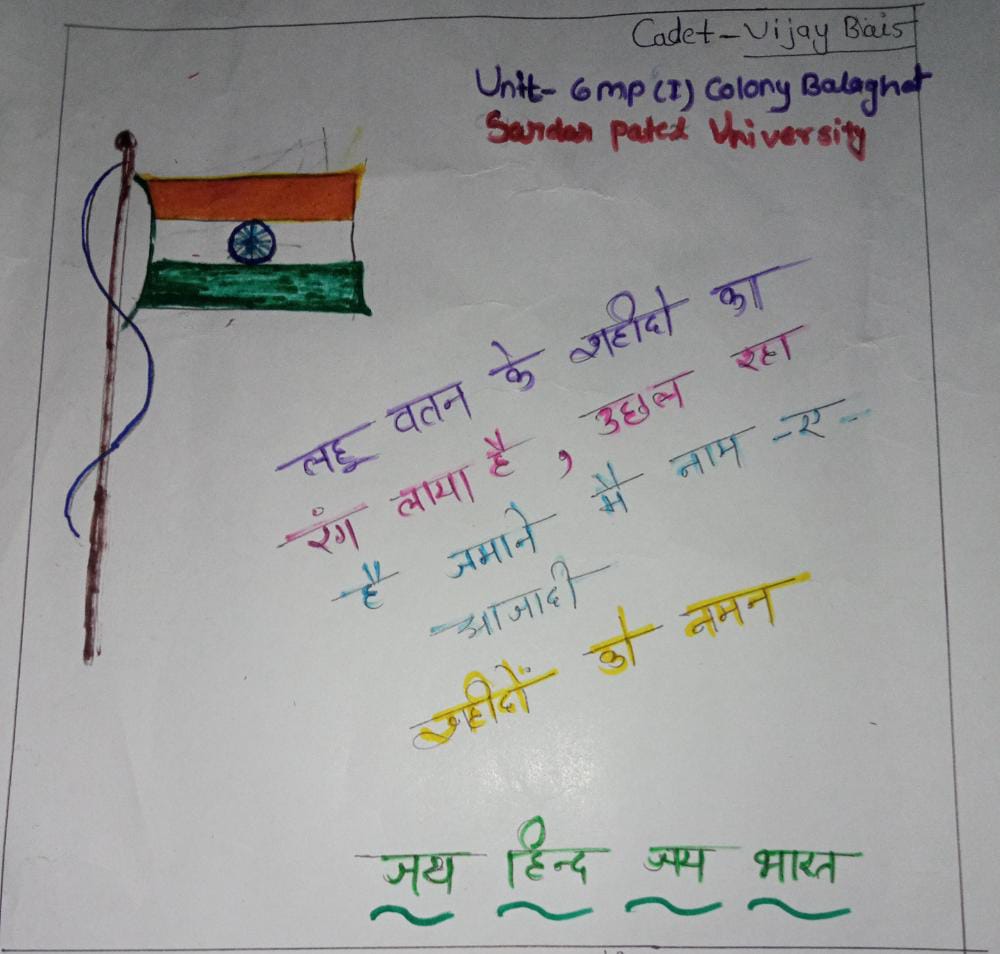 Cadet - Vijay Bais
Unit- 6 mp (I) Colony Balaghat
Sardar patel University
लहू वतन के शहीदो का
रंग लाया है , उछल रहा
है जमाने मै नाम -ए-
आजादी
शहीदों को नमन
जय हिन्द जय भारत